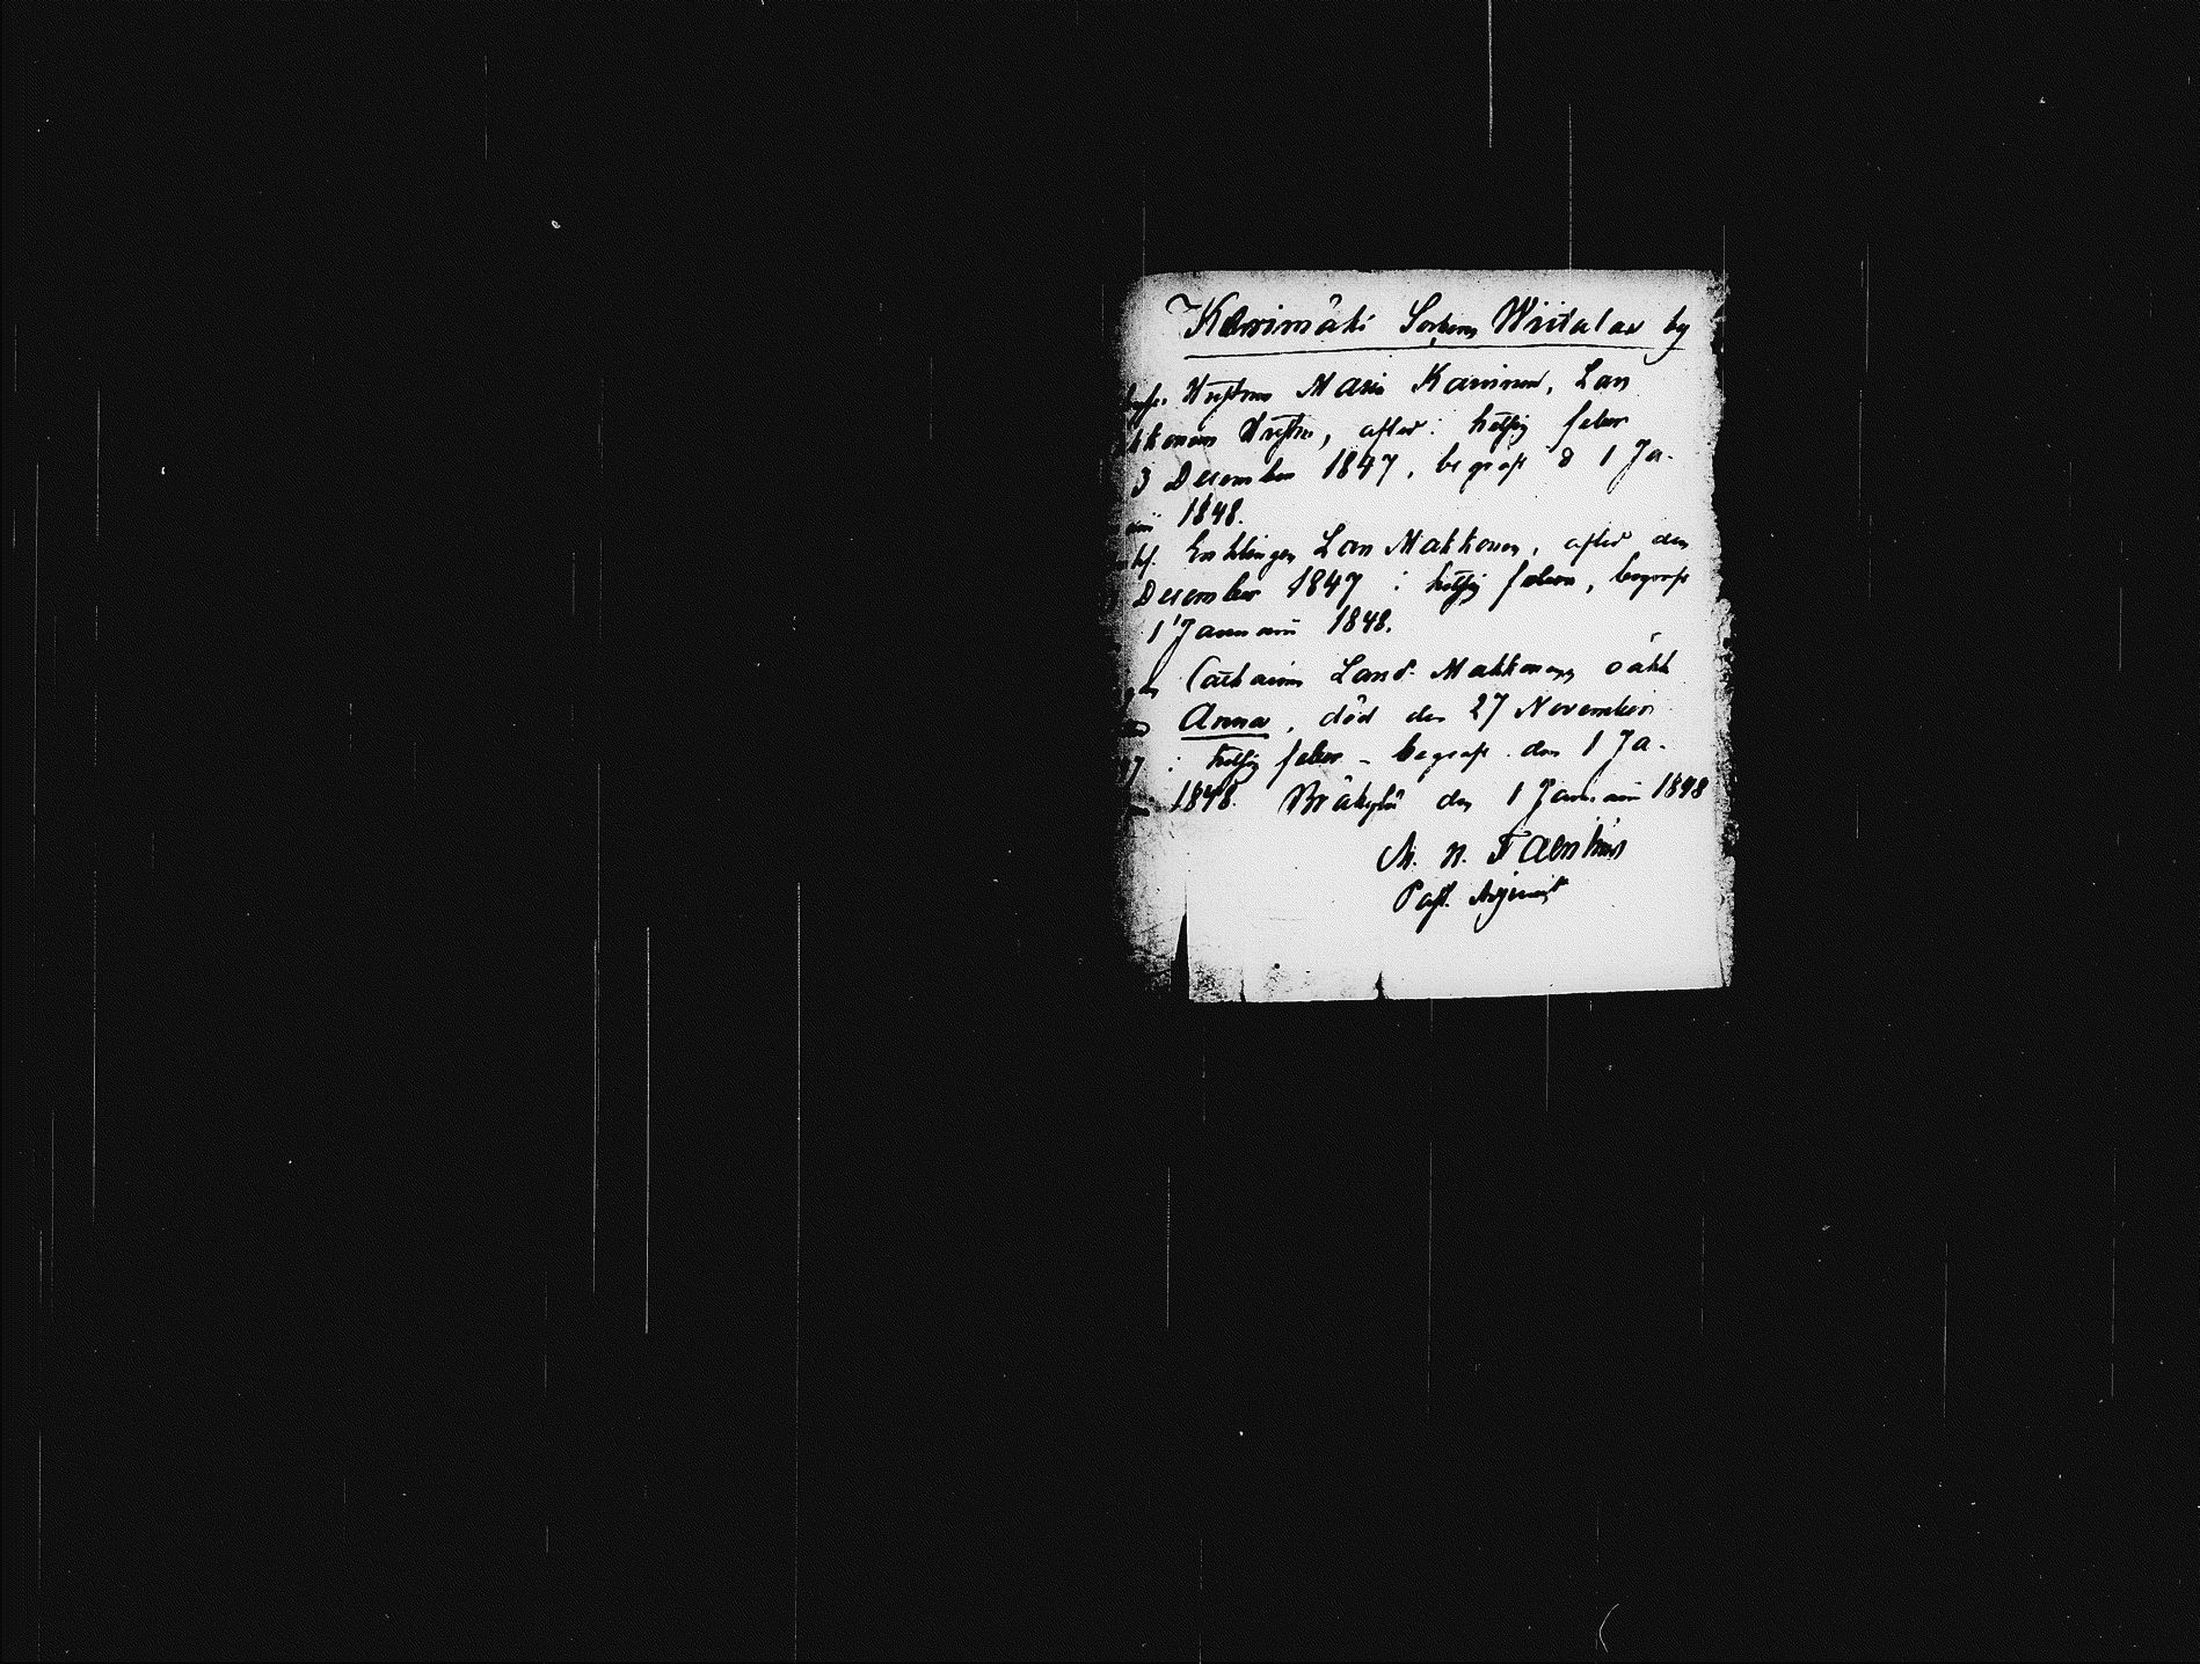 Kerimäki Sockens Wiitalax by
Hustrun Maria Karvinen, Lars
kkonens Hustru, afled: hetsig feber
3 December 1847, begrafv d 1 Ja-
1848.
Enklingen Lars Makkonen, afled den
December 1847 i hetsig feber, begrafv
1 Januarii 1848.
Catharina Larsd. Makkonens oäkta
Anna, död den 27 November
7 i hetsig feber - begrafv. den 1 Ja-
1848. den 1 Januarii 1848
Past. Adjunct